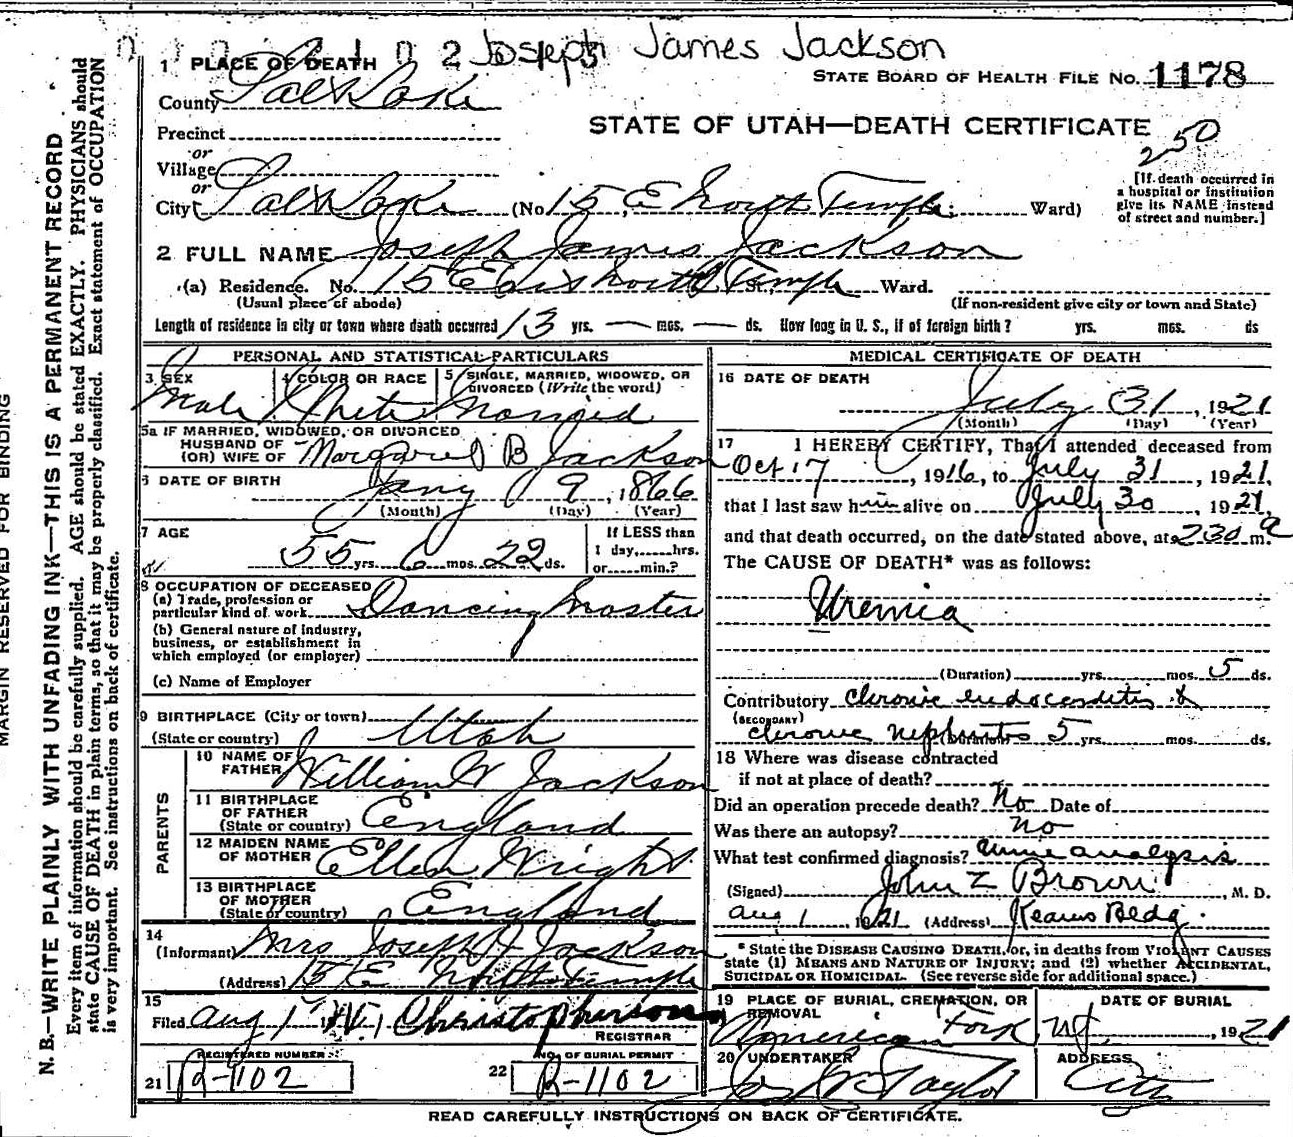 Joseph James Jackson
1 PLACE OF DEATH
STATE BOARD OF HEALTH FILE No. 1178
County Salt Lake
STATE OF UTAH—DEATH CERTIFICATE
250
Precinct
or
Village
or
City Salt Lake (No 15 E North Temple; Ward)
[If death occurred in
a hospital or institution
give its NAME instead
of street and number.]
2 FULL NAME Joseph James Jackson
(a) Residence. No. 15 E North Temple St., Ward.
(Usual place of abode) (If non-resident give city or town and State)
Length of residence in city or town where death occurred 13 yrs. — mos. — ds. How long in U. S., if of foreign birth? yrs. mos. ds
PERSONAL AND STATISTICAL PARTICULARS
3 SEX 4 COLOR OR RACE 5 SINGLE, MARRIED, WIDOWED, OR
DIVORCED (Write the word)
Male White Married
5a IF MARRIED, WIDOWED, OR DIVORCED
HUSBAND OF
(OR) WIFE OF Margaret B Jackson
6 DATE OF BIRTH Jany 9, 1866
(Month) (Day) (Year)
7 AGE 55 yrs. 6 mos. 22 ds.
If LESS than
1 day, hrs.
or min.?
8 OCCUPATION OF DECEASED
(a) Trade, profession or
particular kind of work Dancing Master
(b) General nature of industry,
business, or establishment in
which employed (or employer)
(c) Name of Employer
9 BIRTHPLACE (City or town)
(State or country) Utah
PARENTS
10 NAME OF
FATHER William W Jackson
11 BIRTHPLACE
OF FATHER
(State or country) England
12 MAIDEN NAME
OF MOTHER Ellen Wright
13 BIRTHPLACE
OF MOTHER
(State or country) England
14
(Informant) Mrs Joseph J Jackson
(Address) 15 E North Temple
15
Filed Aug 1 Christopherson
REGISTRAR
REGISTERED NUMBER
21 R-1102
NO. OF BURIAL PERMIT
22 R-1102
MEDICAL CERTIFICATE OF DEATH
16 DATE OF DEATH
July 31, 1921
(Month) (Day) (Year)
17 I HEREBY CERTIFY, That I attended deceased from
Oct 17, 1916, to July 31, 1921,
that I last saw him alive on July 30, 1921,
and that death occurred, on the date stated above, at 2 30 a m.
The CAUSE OF DEATH* was as follows:
Uremia
(Duration) yrs. mos. 5 ds.
Contributory chronic endocarditis &
(SECONDARY)
chronic nephritis (Duration) 5 yrs. mos. ds.
18 Where was disease contracted
if not at place of death?
Did an operation precede death? No Date of
Was there an autopsy? no
What test confirmed diagnosis? Urine analysis
(Signed) John Z Brown, M. D.
Aug 1 1921 (Address) Kearns Bldg.
* State the DISEASE CAUSING DEATH, or, in deaths from VIOLENT CAUSES
state (1) MEANS AND NATURE OF INJURY; and (2) whether ACCIDENTAL,
SUICIDAL OR HOMICIDAL. (See reverse side for additional space.)
19 PLACE OF BURIAL, CREMATION, OR
REMOVAL
DATE OF BURIAL
American Fork Ut, 1921
20 UNDERTAKER
ADDRESS
Jos Wm Taylor City
READ CAREFULLY INSTRUCTIONS ON BACK OF CERTIFICATE.
MARGIN RESERVED FOR BINDING
N. B.—WRITE PLAINLY WITH UNFADING INK—THIS IS A PERMANENT RECORD
Every item of information should be carefully supplied. AGE should be stated EXACTLY. PHYSICIANS should
state CAUSE OF DEATH in plain terms, so that it may be properly classified. Exact statement of OCCUPATION
is very important. See instructions on back of certificate.